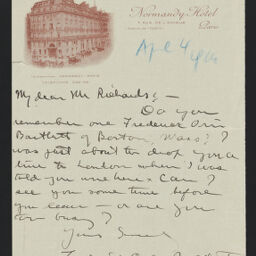 Normandy Hotel
7 RUE DE L'ECHELLE
Paris
Apl 4
My dear Mr Richards: —
Do you
remember one Frederic Orin
Bartlett of Boston, Mass? I
was just about to drop you a
line to London where I was
told you were here. Can I
see you some time before
you leave — or are you
too busy?
Yours Sincerely